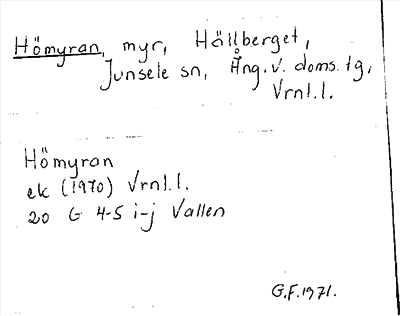 Hömyran, myr, Hällberget,
Junsele sn, Ång. v. doms. tg.
Vrnl. l.
Hömyran
ek (1970) Vrnl. l.
20 G 4-5 i-j Vallen
G.F. 1971.